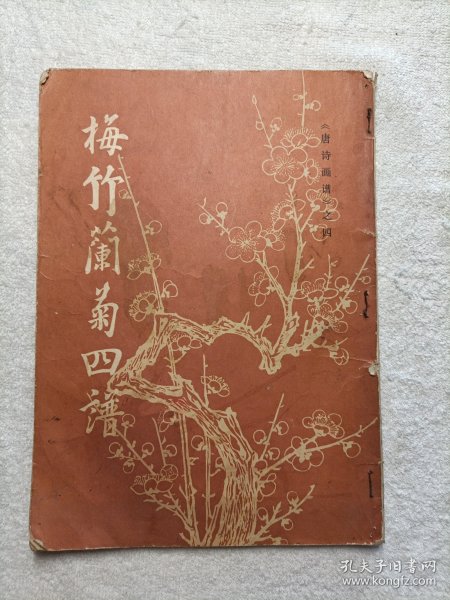 《唐诗画谱》之四
梅竹蘭菊四譜
孔夫子旧书网
www.kongfz.com